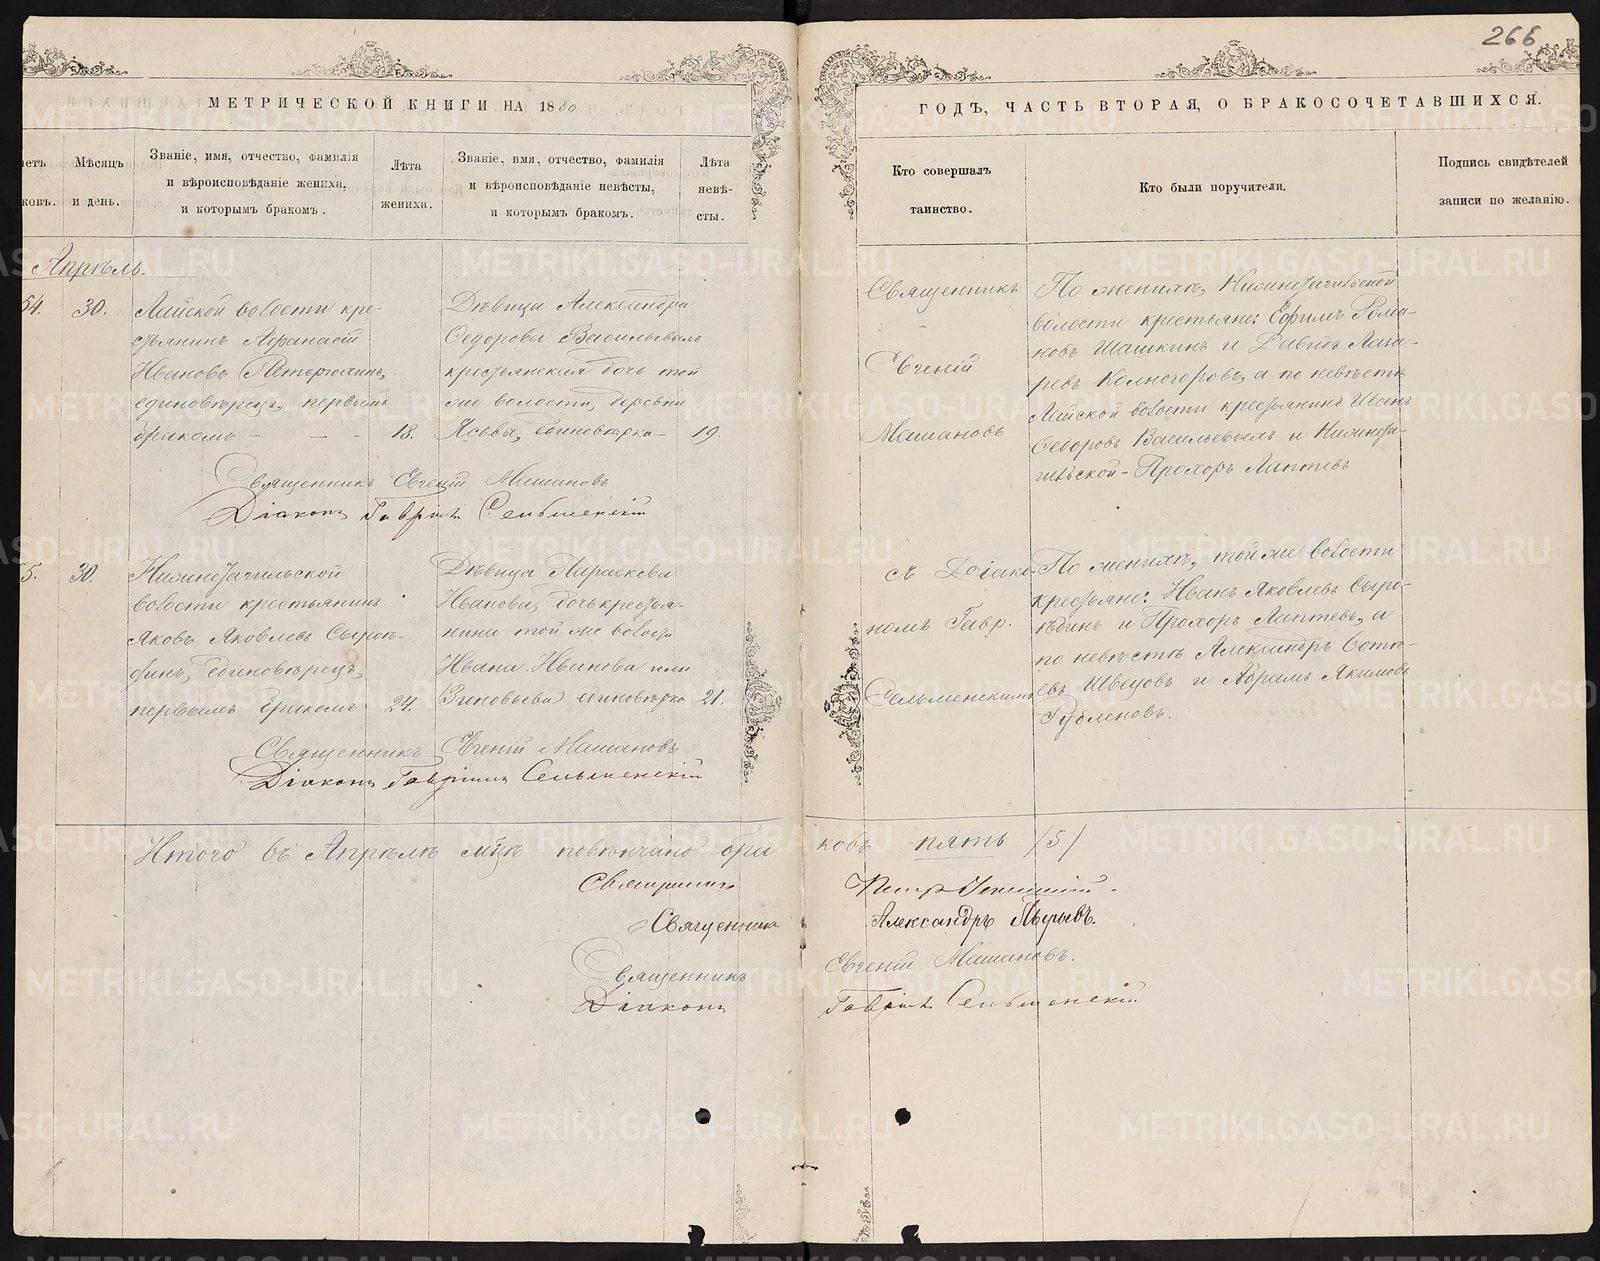 266
МЕТРИЧЕСКОЙ КНИГИ НА 1880
ГОДЪ, ЧАСТЬ ВТОРАЯ, О БРАКОСОЧЕТАВШИХСЯ.
четъ
ковъ.
Мѣсяцъ
и день.
Званіе, имя, отчество, фамилія
и вѣроисповѣданіе жениха,
и которымъ бракомъ.
Лѣта
жениха.
Званіе, имя, отчество, фамилія
и вѣроисповѣданіе невѣсты,
и которымъ бракомъ.
Лѣта
невѣ-
сты.
Кто совершалъ
таинство.
Кто были поручители.
Подпись свидѣтелей
записи по желанію.
Апрѣль.
54.
30.
Лайской волости кре-
стьянинъ Афанасій
Ивановъ
единовѣрецъ, первымъ
бракомъ - - -
18.
Дѣвица Александра
Федорова Васильевыхъ
крестьянская дочь той
же волости, деревни
Ясьва, единовѣрка -
19.
Священникъ
Евгеній
Машановъ
По женихѣ, Нижнетагильской
волости крестьяне: Ефимъ Рома-
новъ Шашкинъ и Давидъ Лаза-
ревъ Колногоровъ, а по невѣстѣ
Лайской волости крестьянинъ Иванъ
Федоровъ Васильевыхъ и Нижнета-
гильской - Прохоръ Лаптевъ
Священникъ Евгеній Машановъ
Діаконъ Гавріилъ Сельменскій
5.
30.
Нижнетагильской
волости крестьянинъ
Яковъ Яковлевъ Сыроѣ-
динъ, единовѣрецъ,
первымъ бракомъ
24.
Дѣвица Параскева
Иванова, дочь крестья-
нина той же волости
Ивана Иванова или
Зиновьева единовѣрка
21.
съ Діако-
номъ Гавр.
Сельменскимъ
По женихѣ, той же волости
крестьяне: Иванъ Яковлевъ Сыро-
ѣдинъ и Прохоръ Лаптевъ, а
по невѣстѣ Александръ
евъ Швецовъ и Абрамъ Якимовъ
Рубленовъ.
Священникъ Евгеній Машановъ
Діаконъ Гавріилъ Сельменскій
Итого въ Апрѣлѣ мцѣ повѣнчано бра
ковъ пять /5/
Священникъ
Петръ
Священникъ
Александръ
Священникъ
Евгеній Машановъ.
Діаконъ
Гавріилъ Сельменскій
METRIKI.GASO-URAL.RU